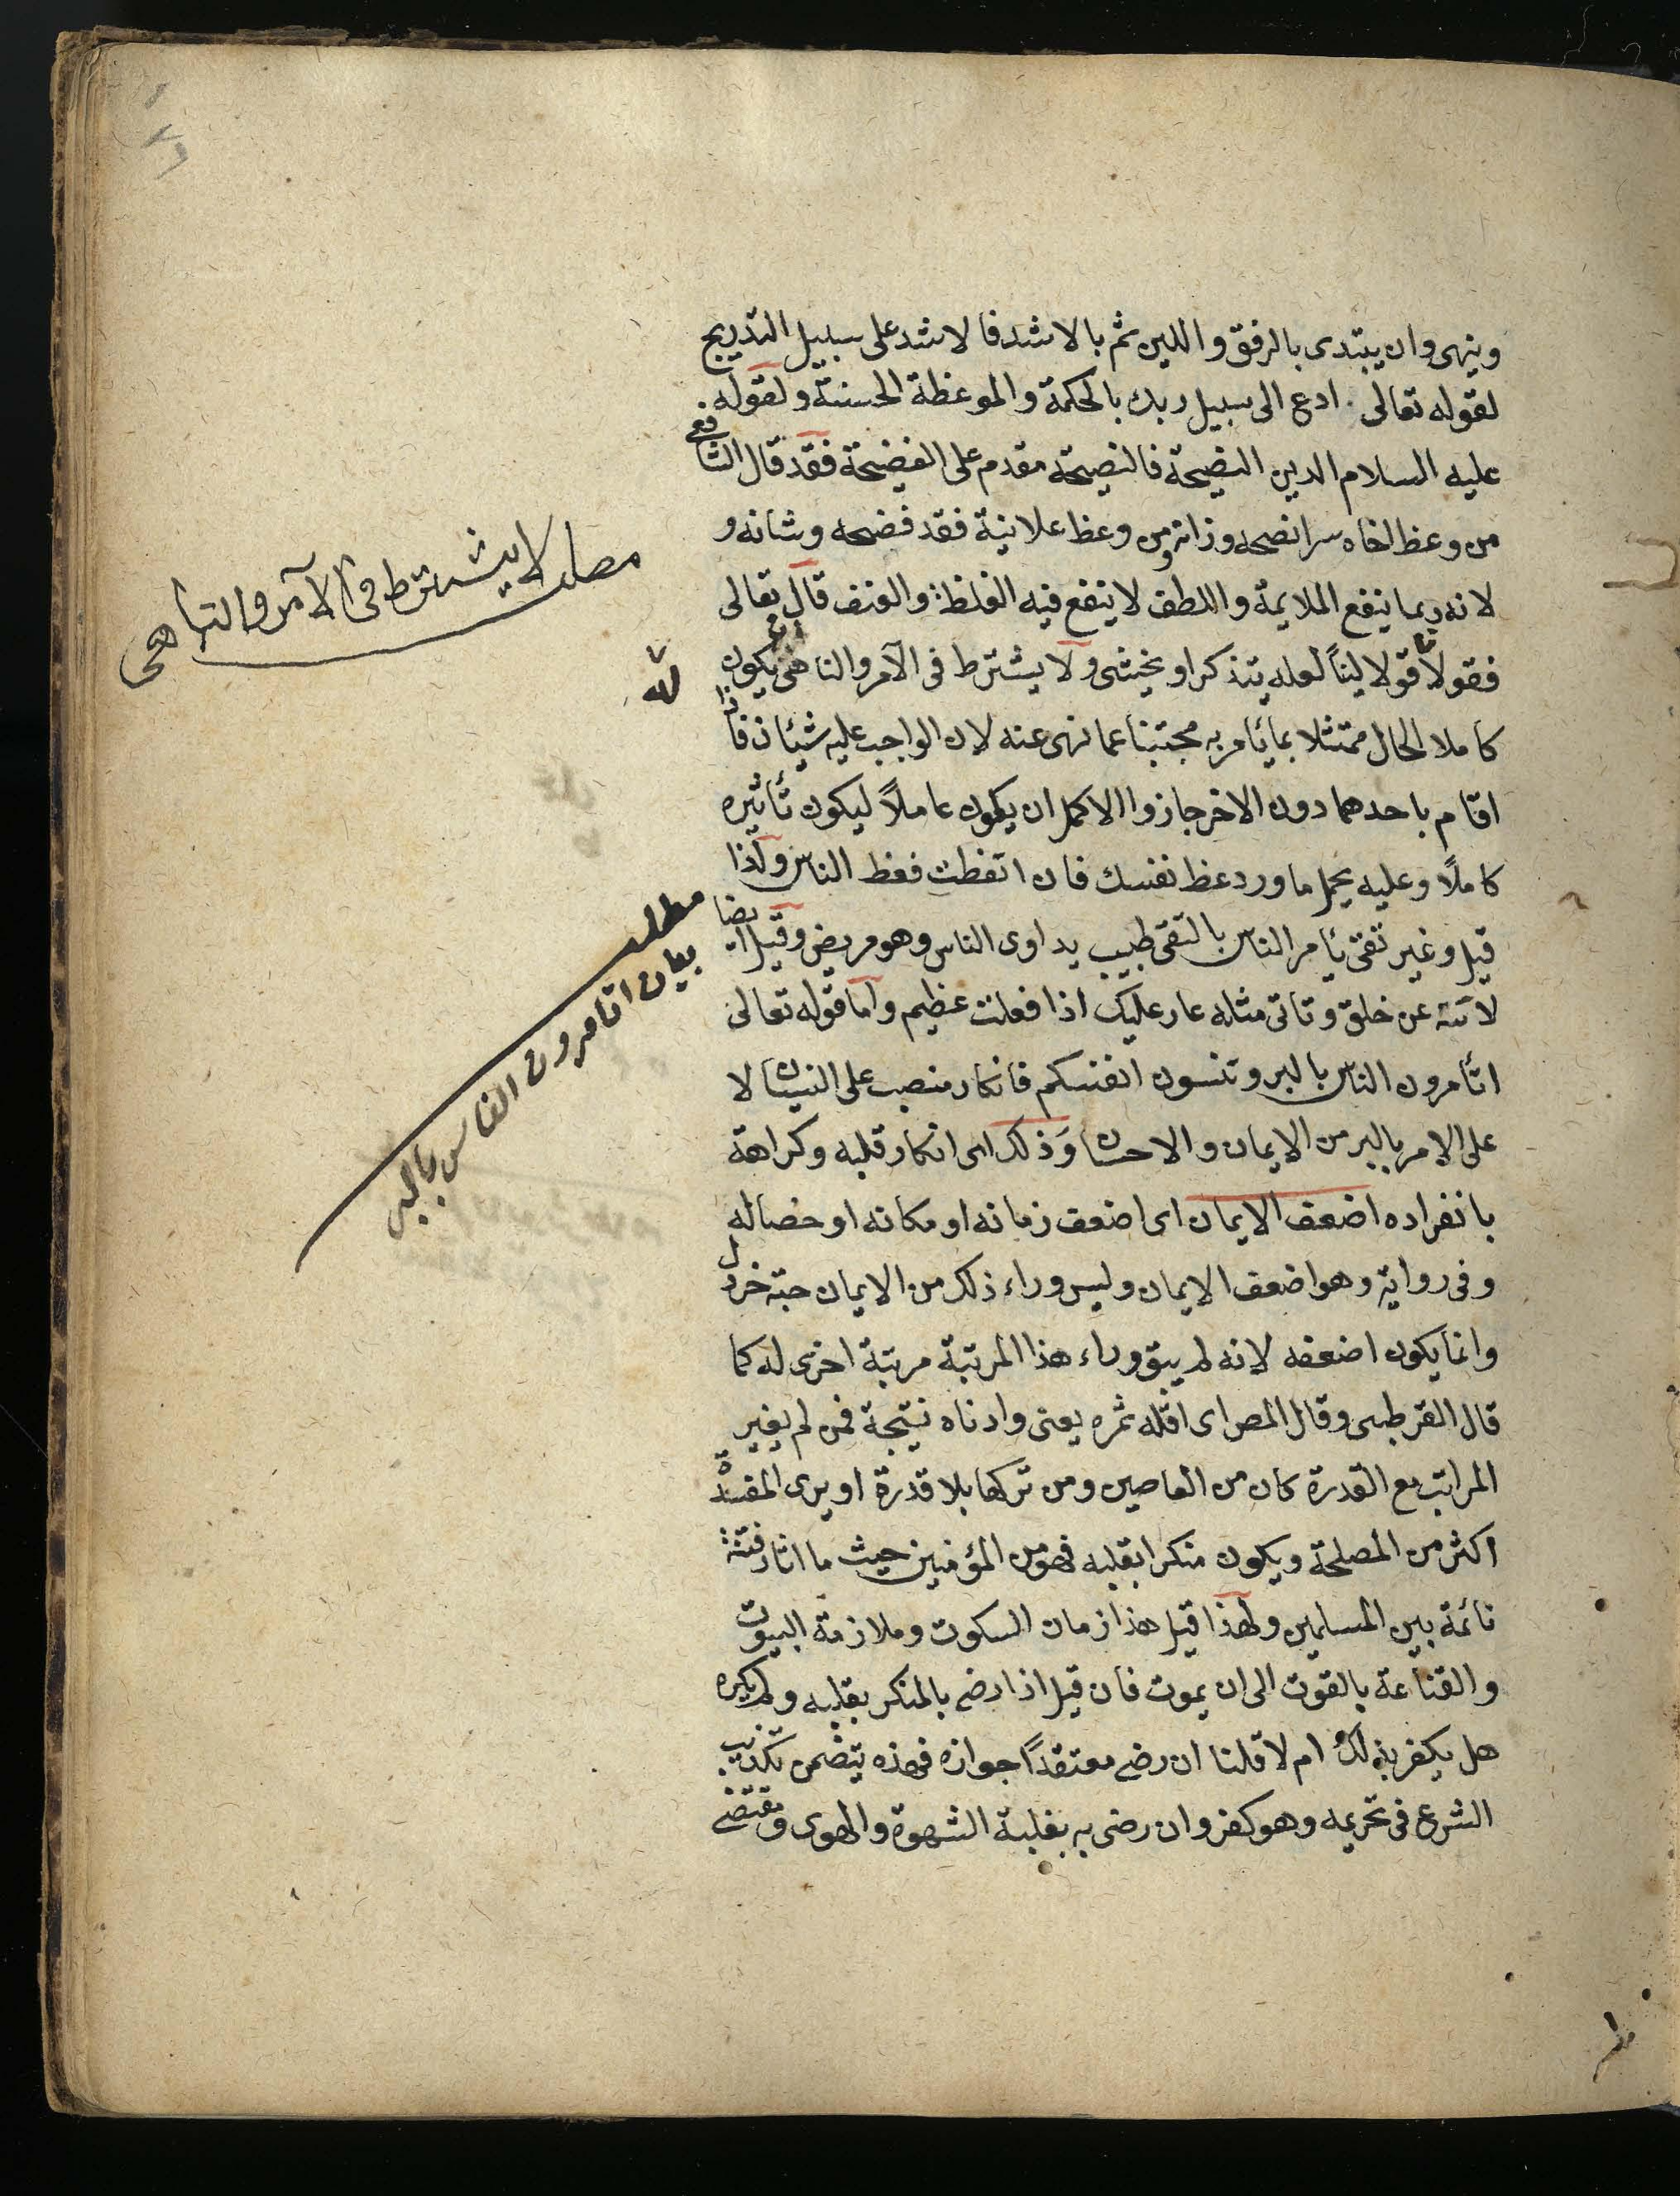 وينهى وان يبتدى بالرفق واللين ثم بالاشد فالاشد على سبيل التدريج
لقوله تعالى . ادع الى سبيل ربك بالحكمة والموعظة الحسنة ولقوله
عليه السلام الدين النصيحة فالنصيحة مقدم على الفضيحة فقد قال الشافعى
من وعظ اخاه سرا نصحه وزانه ومن وعظ علانية فقد فضحه وشانه و
لانه ربما ينفع الملايمة واللطف لا ينفع فيه الغلظة والعنف قال تعالى
فقولا له قولا لينا لعله يتذكر او يخشى ولا يشترط فى الآمر والناهى ان يكون
كاملا الحال ممتثلا بما يأمر به مجتنبا عما نهى عنه لان الواجب عليه شيئان فاذا
اقام باحدهما دون الاخر جاز والاكمل ان يكون عاملاً ليكون تأثيره
كاملاً وعليه يحمل ما ورد عظ نفسك فان اتعظت فعظ الناس ولذا
قيل وغير تقى يأمر الناس بالتقى طبيب يداوى الناس وهو مريض وقيل ايضا
لا تنه عن خلق وتاتى مثله عار عليك اذا فعلت عظيم واما قوله تعالى
اتأمرون الناس بالبر وتنسون انفسكم فانكار منصب على النسيان لا
على الامر بالبر من الايمان والاحسان وَذلك اى انكار قلبه وكراهة
بانفراده اضعف الايمان اى اضعف زمانه او مكانه او خصاله
وفى رواية وهو اضعف الايمان وليس وراء ذلك من الايمان حبة خردل
وانما يكون اضعفه لانه لم يبق وراء هذا المرتبة مرتبة اخرى له كما
قال القرطبى وقال المص اى اقله ثمره يعنى وادناه نتيجة فمن لم يغير
المراتب مع القدرة كان من العاصين ومن تركها بلا قدرة او يرى المفسدة
اكثر من المصلحة ويكون منكرا بقلبه فهو من المؤمنين حيث ما اثار فتنة
نائمة بين المسلمين ولهذا قيل هذا زمان السكوت وملازمة البيوت
والقناعة بالقوت الى ان يموت فان قيل اذا رضى بالمنكر بقلبه ولم يكره
هل يكفر بذلك ام لا قلنا ان رضى معتقداً جوازه فهذه يتضمن تكذيب
الشرع فى تحريمه وهو كفر وان رضى به بغلبة الشهوة والهوى ومقتضى
مطلب لا يشترط فى الآمر والناهى
مطلب
بيان اتامرون الناس بالبر